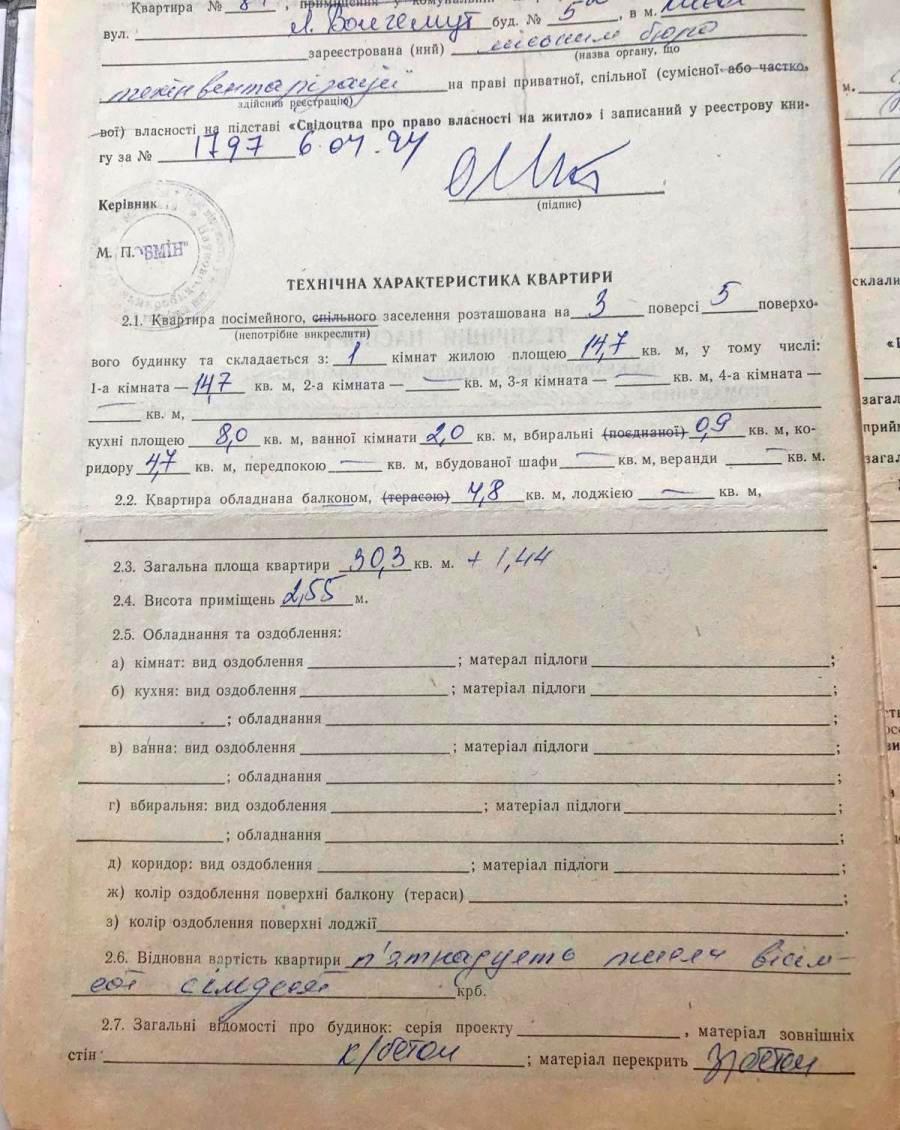 Квартира № 81, приміщення у комунальній
вул. Л. Волгемут буд. № 5а, в м. Києві
зареєстрована (ний) міським бюро
(назва органу, що
техінвентарізації на праві приватної, спільної (сумісної або частко-
здійснив реєстрацію)
вої) власності на підставі «Свідоцтва про право власності на житло» і записаний у реєстрову кни-
гу за № 1797 6.04.94
Керівник
(підпис)
М. П. "БМІН"
ТЕХНІЧНА ХАРАКТЕРИСТИКА КВАРТИРИ
2.1. Квартира посімейного, спільного заселення розташована на 3 поверсі 5 поверхо-
(непотрібне викреслити)
вого будинку та складається з: 1 кімнат жилою площею 14,7 кв. м, у тому числі:
1-а кімната — 14,7 кв. м, 2-а кімната — — кв. м, 3-я кімната — — кв. м, 4-а кімната —
— кв. м,
кухні площею 8,0 кв. м, ванної кімнати 2,0 кв. м, вбиральні (поєднаної) 0,9 кв. м, ко-
ридору 4,7 кв. м, передпокою — кв. м, вбудованої шафи — кв. м, веранди — кв. м.
2.2. Квартира обладнана балконом, (терасою) 4,8 кв. м, лоджією — кв. м,
2.3. Загальна площа квартири 30,3 кв. м. + 1,44
2.4. Висота приміщень 2,55 м.
2.5. Обладнання та оздоблення:
а) кімнат: вид оздоблення ; матерал підлоги ;
б) кухня: вид оздоблення ; матеріал підлоги ;
; обладнання ;
в) ванна: вид оздоблення ; матеріал підлоги ;
; обладнання ;
г) вбиральня: вид оздоблення ; матеріал підлоги ;
; обладнання ;
д) коридор: вид оздоблення ; матеріал підлоги ;
ж) колір оздоблення поверхні балкону (тераси) ;
з) колір оздоблення поверхні лоджії .
2.6. Відновна вартість квартири п'ятнадцять тисяч вісім-
сот сімдесят крб.
2.7. Загальні відомості про будинок: серія проекту , матеріал зовнішніх
стін к/бетон ; матеріал перекрить з/бетон
м.
склали
загал
прий
загал